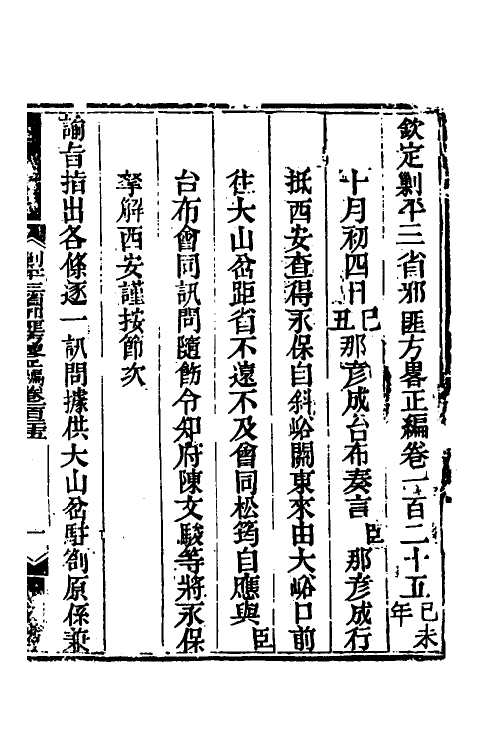 欽定剿平三省邪匪方畧正編卷一百二十五己未年
十月初四日己丑那彦成台布奏言臣那彦成行
抵西安查得永保自斜峪關東來由大峪口前
往大山岔距省不遠不及會同松筠自應與臣
台布會同訊問隨飭令知府陳文駿等將永保
拏解西安謹按節次
諭旨指出各條逐一訊問據供大山岔駐劄原係兼
剿平三省邪匪方畧正編卷一百二十五
一